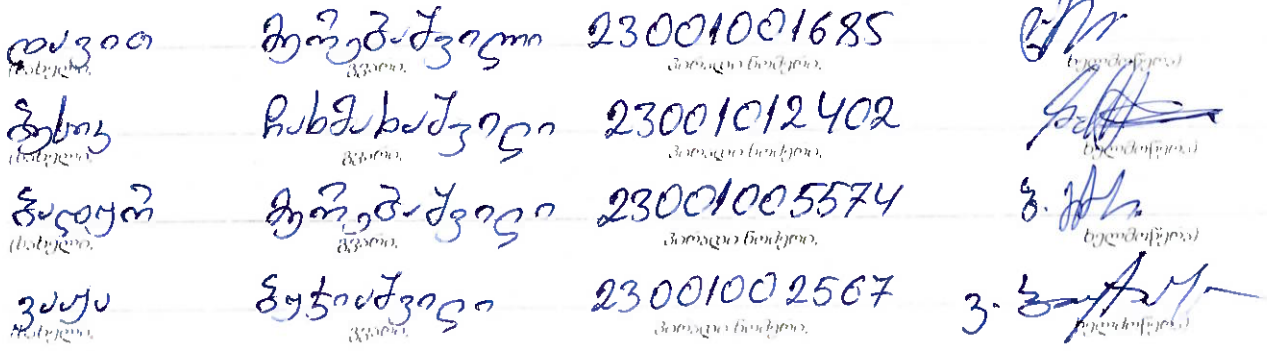 დავით მერებაშვილი 23001001685
(სახელი, გვარი, პირადი ნომერი, ხელმოწერა)
ბესიკ ჩახმახაშვილი 23001012402
(სახელი, გვარი, პირადი ნომერი, ხელმოწერა)
ბადურ მერებაშვილი 23001005574
(სახელი, გვარი, პირადი ნომერი, ხელმოწერა)
ვაჟა ბეჟიაშვილი 23001002567
(სახელი, გვარი, პირადი ნომერი, ხელმოწერა)